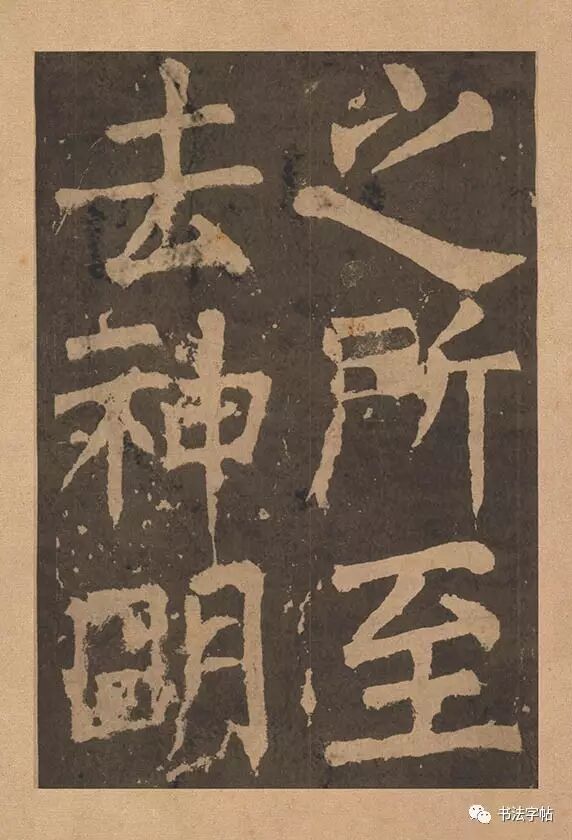 之所至
去神明
书法字帖